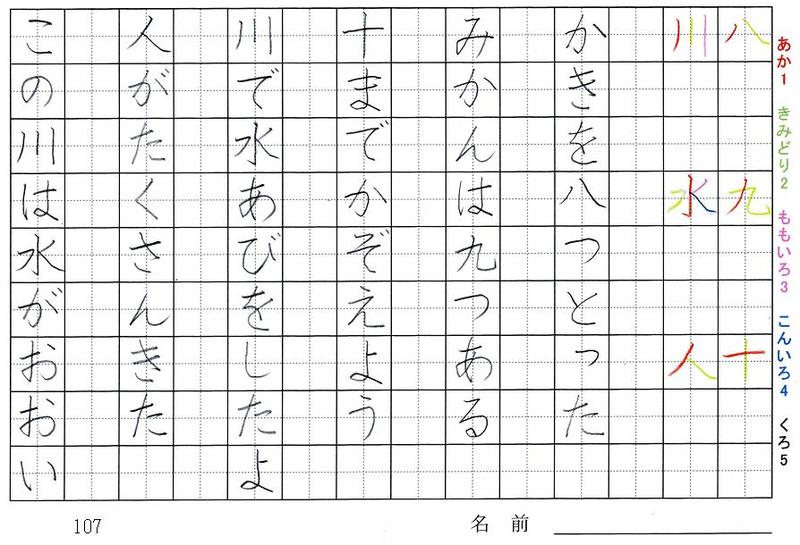 あか1 きみどり2 ももいろ3 こんいろ4 くろ5
八 九 十
川 水 人
かきを八つとった
みかんは九つある
十までかぞえよう
川で水あびをしたよ
人がたくさんきた
この川は水がおおい
名前
107